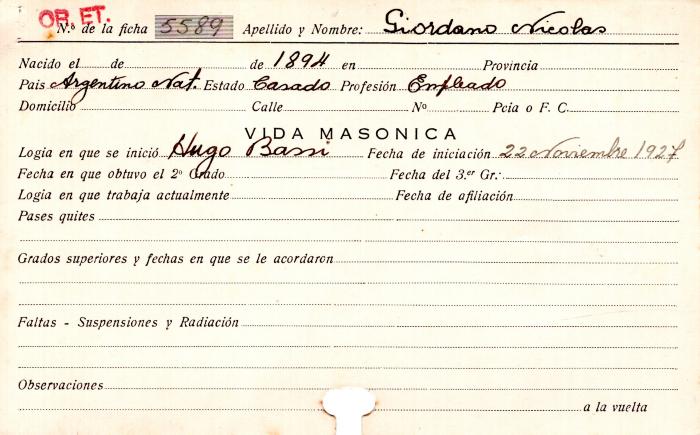 OR. ET.
N.º de la ficha 5589 Apellido y Nombre: Giordano Nicolas
Nacido el de de 1894 en Provincia
Pais Argentino Nat. Estado Casado Profesión Empleado
Domicilio Calle Nº Pcia o F. C.
VIDA MASONICA
Logia en que se inició Hugo Bassi Fecha de iniciación 22 Noviembre 1927
Fecha en que obtuvo el 2º Grado Fecha del 3.er Gr.:
Logia en que trabaja actualmente Fecha de afiliación
Pases quites
Grados superiores y fechas en que se le acordaron
Faltas - Suspensiones y Radiación
Observaciones
a la vuelta